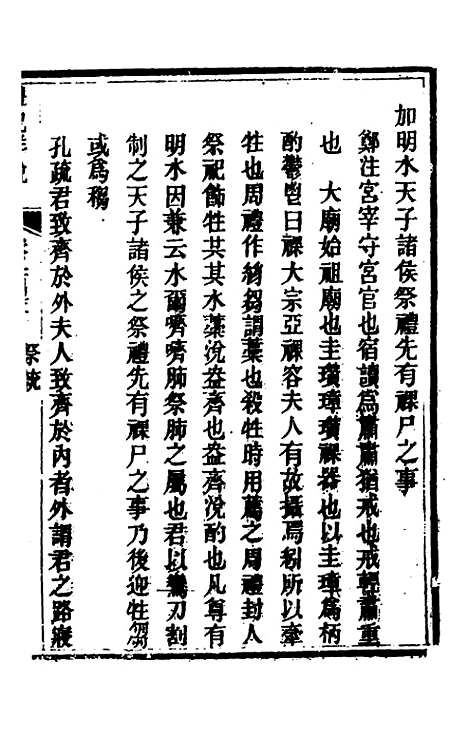 加明水天子諸侯祭禮先有祼尸之事
鄭注宮宰守宮官也宿讀爲肅肅猶戒也戒輕肅重
也　大廟始祖廟也圭瓚璋瓚祼器也以圭璋爲柄
酌鬱鬯曰祼大宗亞祼容夫人有故攝焉紖所以牽
牲也周禮作絼芻謂藁也殺牲時用薦之周禮封人
祭祀飾牲共其水藁涗盎齊也盎齊涗酌也凡尊有
明水因兼云水爾嚌嚌肺祭肺之屬也君以鸞刀割
制之天子諸侯之祭禮先有祼尸之事乃後迎牲芻
或爲稠
孔疏君致齊於外夫人致齊於內者外謂君之路寢
祭統